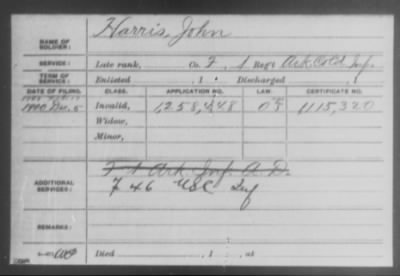 NAME OF SOLDIER: Harris, John
SERVICE: Late rank, Co. F, 1 Reg't Ark Cold Inf.
TERM OF SERVICE: Enlisted , 1 Discharged , 1
DATE OF FILING. CLASS. APPLICATION NO. LAW. CERTIFICATE NO.
1900 Dec. 5 Invalid, 1,258,448 1115,320
Widow,
Minor,
ADDITIONAL SERVICES: F 1 Ark. Inf. A. D.
F 46 USC Inf
REMARKS:
Died , 1 , at